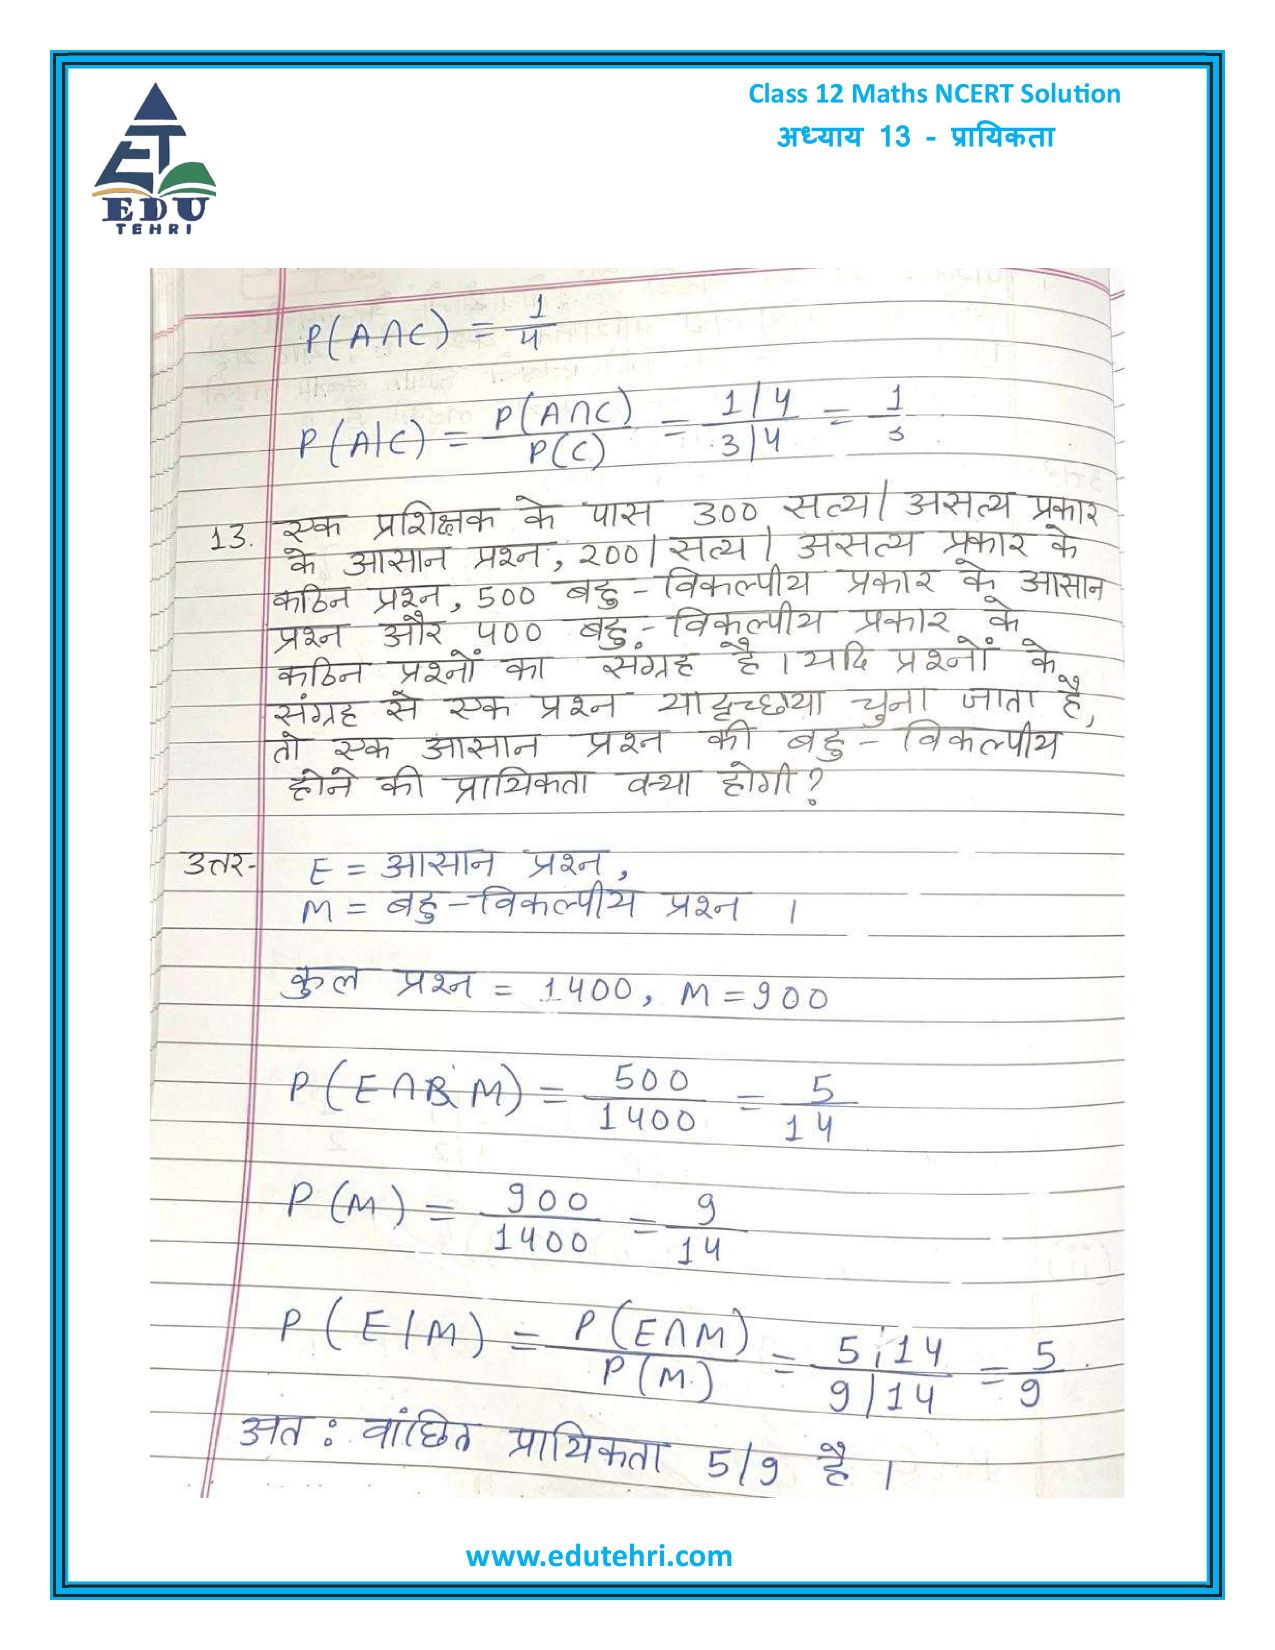 EDU
TEHRI
Class 12 Maths NCERT Solution
अध्याय 13 - प्रायिकता
P(A∩C) = 1/4
P(A|C) = P(A∩C)/P(C) = 1/4 / 3/4 = 1/3
13. एक प्रशिक्षक के पास 300 सत्य/असत्य प्रकार
के आसान प्रश्न, 200/सत्य/असत्य प्रकार के
कठिन प्रश्न, 500 बहु-विकल्पीय प्रकार के आसान
प्रश्न और 400 बहु-विकल्पीय प्रकार के
कठिन प्रश्नों का संग्रह है। यदि प्रश्नों के
संग्रह से एक प्रश्न यादृच्छया चुना जाता है,
तो एक आसान प्रश्न की बहु-विकल्पीय
होने की प्रायिकता क्या होगी?
उत्तर- E = आसान प्रश्न,
M = बहु-विकल्पीय प्रश्न ।
कुल प्रश्न = 1400, M = 900
P(E∩M) = 500/1400 = 5/14
P(M) = 900/1400 = 9/14
P(E|M) = P(E∩M)/P(M) = 5/14 / 9/14 = 5/9
अत: वांछित प्रायिकता 5/9 है ।
www.edutehri.com